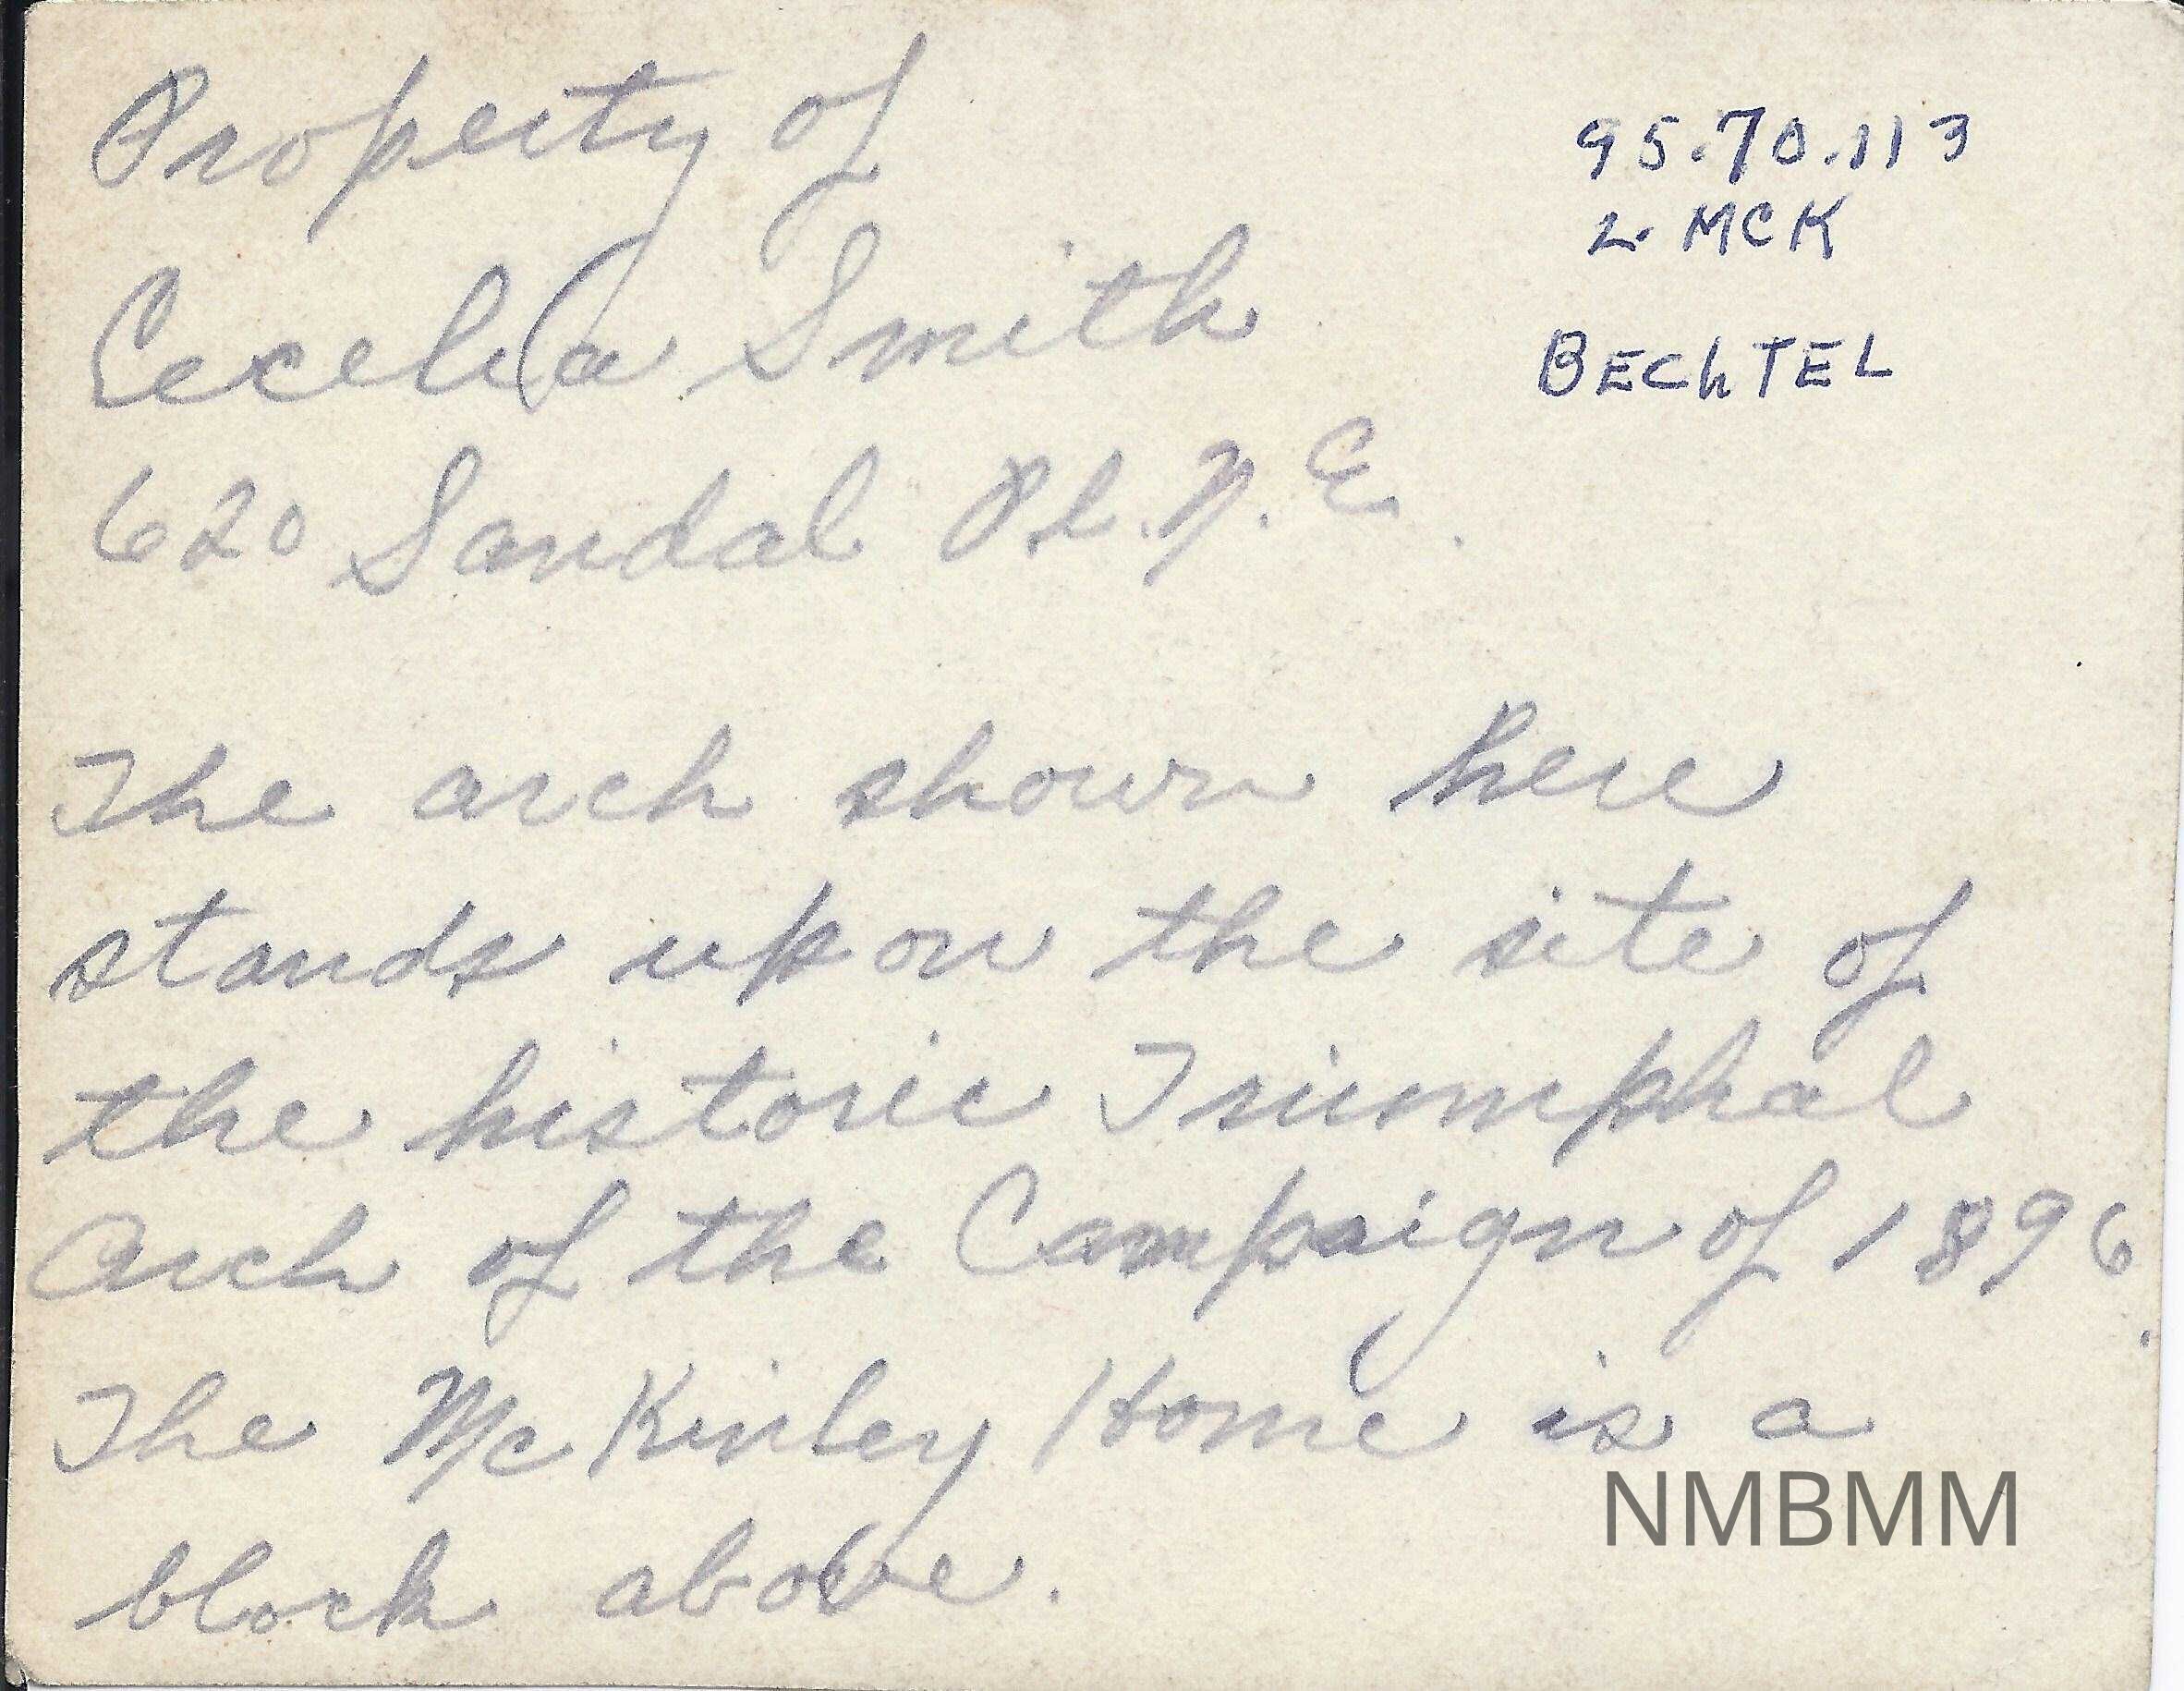 Property of
Cecelia Smith
620 Sandal Pl. N.E.
95.70.113
2. MCK
BEChTEL
The arch shown here
stands upon the site of
the historic Triumphal
Arch of the Campaign of 1896.
The McKinley Home is a
block above.
NMBMM